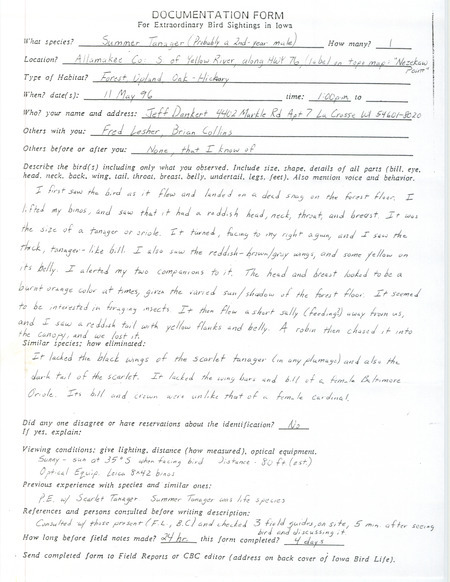 DOCUMENTATION FORM
For Extraordinary Bird Sightings in Iowa
What species? Summer Tanager (Probably a 2nd-year male) How many? 1
Location? Allamakee Co. S of Yellow River, along HWY 76, (label on topo map: "Nezekaw Point"
Type of Habitat? Forest, Upland, Oak-Hickory
When? date(s): 11 May 96 time: 1:00pm to
Who? your name and address: Jeff Dankert 4402 Markle Rd Apt 7 La Crosse WI 54601-8020
Others with you: Fred Lesher, Brian Collins
Others before or after you: None, that I know of
Describe the bird(s) including only what you observed. Include size, shape, details of all parts (bill, eye,
head, neck, back, wing, tail, throat, breast, belly, undertail, legs, feet). Also mention voice and behavior.
I first saw the bird as it flew and landed on a dead snag on the forest floor. I
lifted my binos, and saw that it had a reddish head, neck, throat, and breast. It was
the size of a tanager or oriole. It turned, facing to my right again, and I saw the
thick, tanager-like bill. I also saw the reddish-brown/gray wings, and some yellow on
its belly. I alerted my two companions to it. The head and breast looked to be a
burnt orange color at times, given the varied sun/shadow of the forest floor. It seemed
to be interested in foraging insects. It then flew a short sally (feeding?) away from us,
and I saw a reddish tail with yellow flanks and belly. A robin then chased it into
the canopy, and we lost it.
Similar species; how eliminated:
It lacked the black wings of the scarlet tanager (in any plumage) and also the
dark tail of the scarlet. It lacked the wing bars and bill of a female Baltimore
Oriole. Its bill and crown were unlike that of a female cardinal.
Did any one disagree or have reservations about the identification? No
If yes, explain:
Viewing conditions; give lighting, distance (how measured), optical equipment.
Sunny - sun at 35° S when facing bird Distance - 80 ft (est)
Optical Equip. Leica 8x42 binos
Previous experience with species and similar ones:
P.E. w/ Scarlet Tanager Summer Tanager was life species
References and persons consulted before writing description:
Consulted w/ those present (F.L., B.C.) and checked 3 field guides, on site, 5 min. after seeing
bird and discussing it.
How long before field notes made? 24 hr. this form completed? 4 days
Send completed form to Field Reports or CBC editor (address on back cover of Iowa Bird Life).